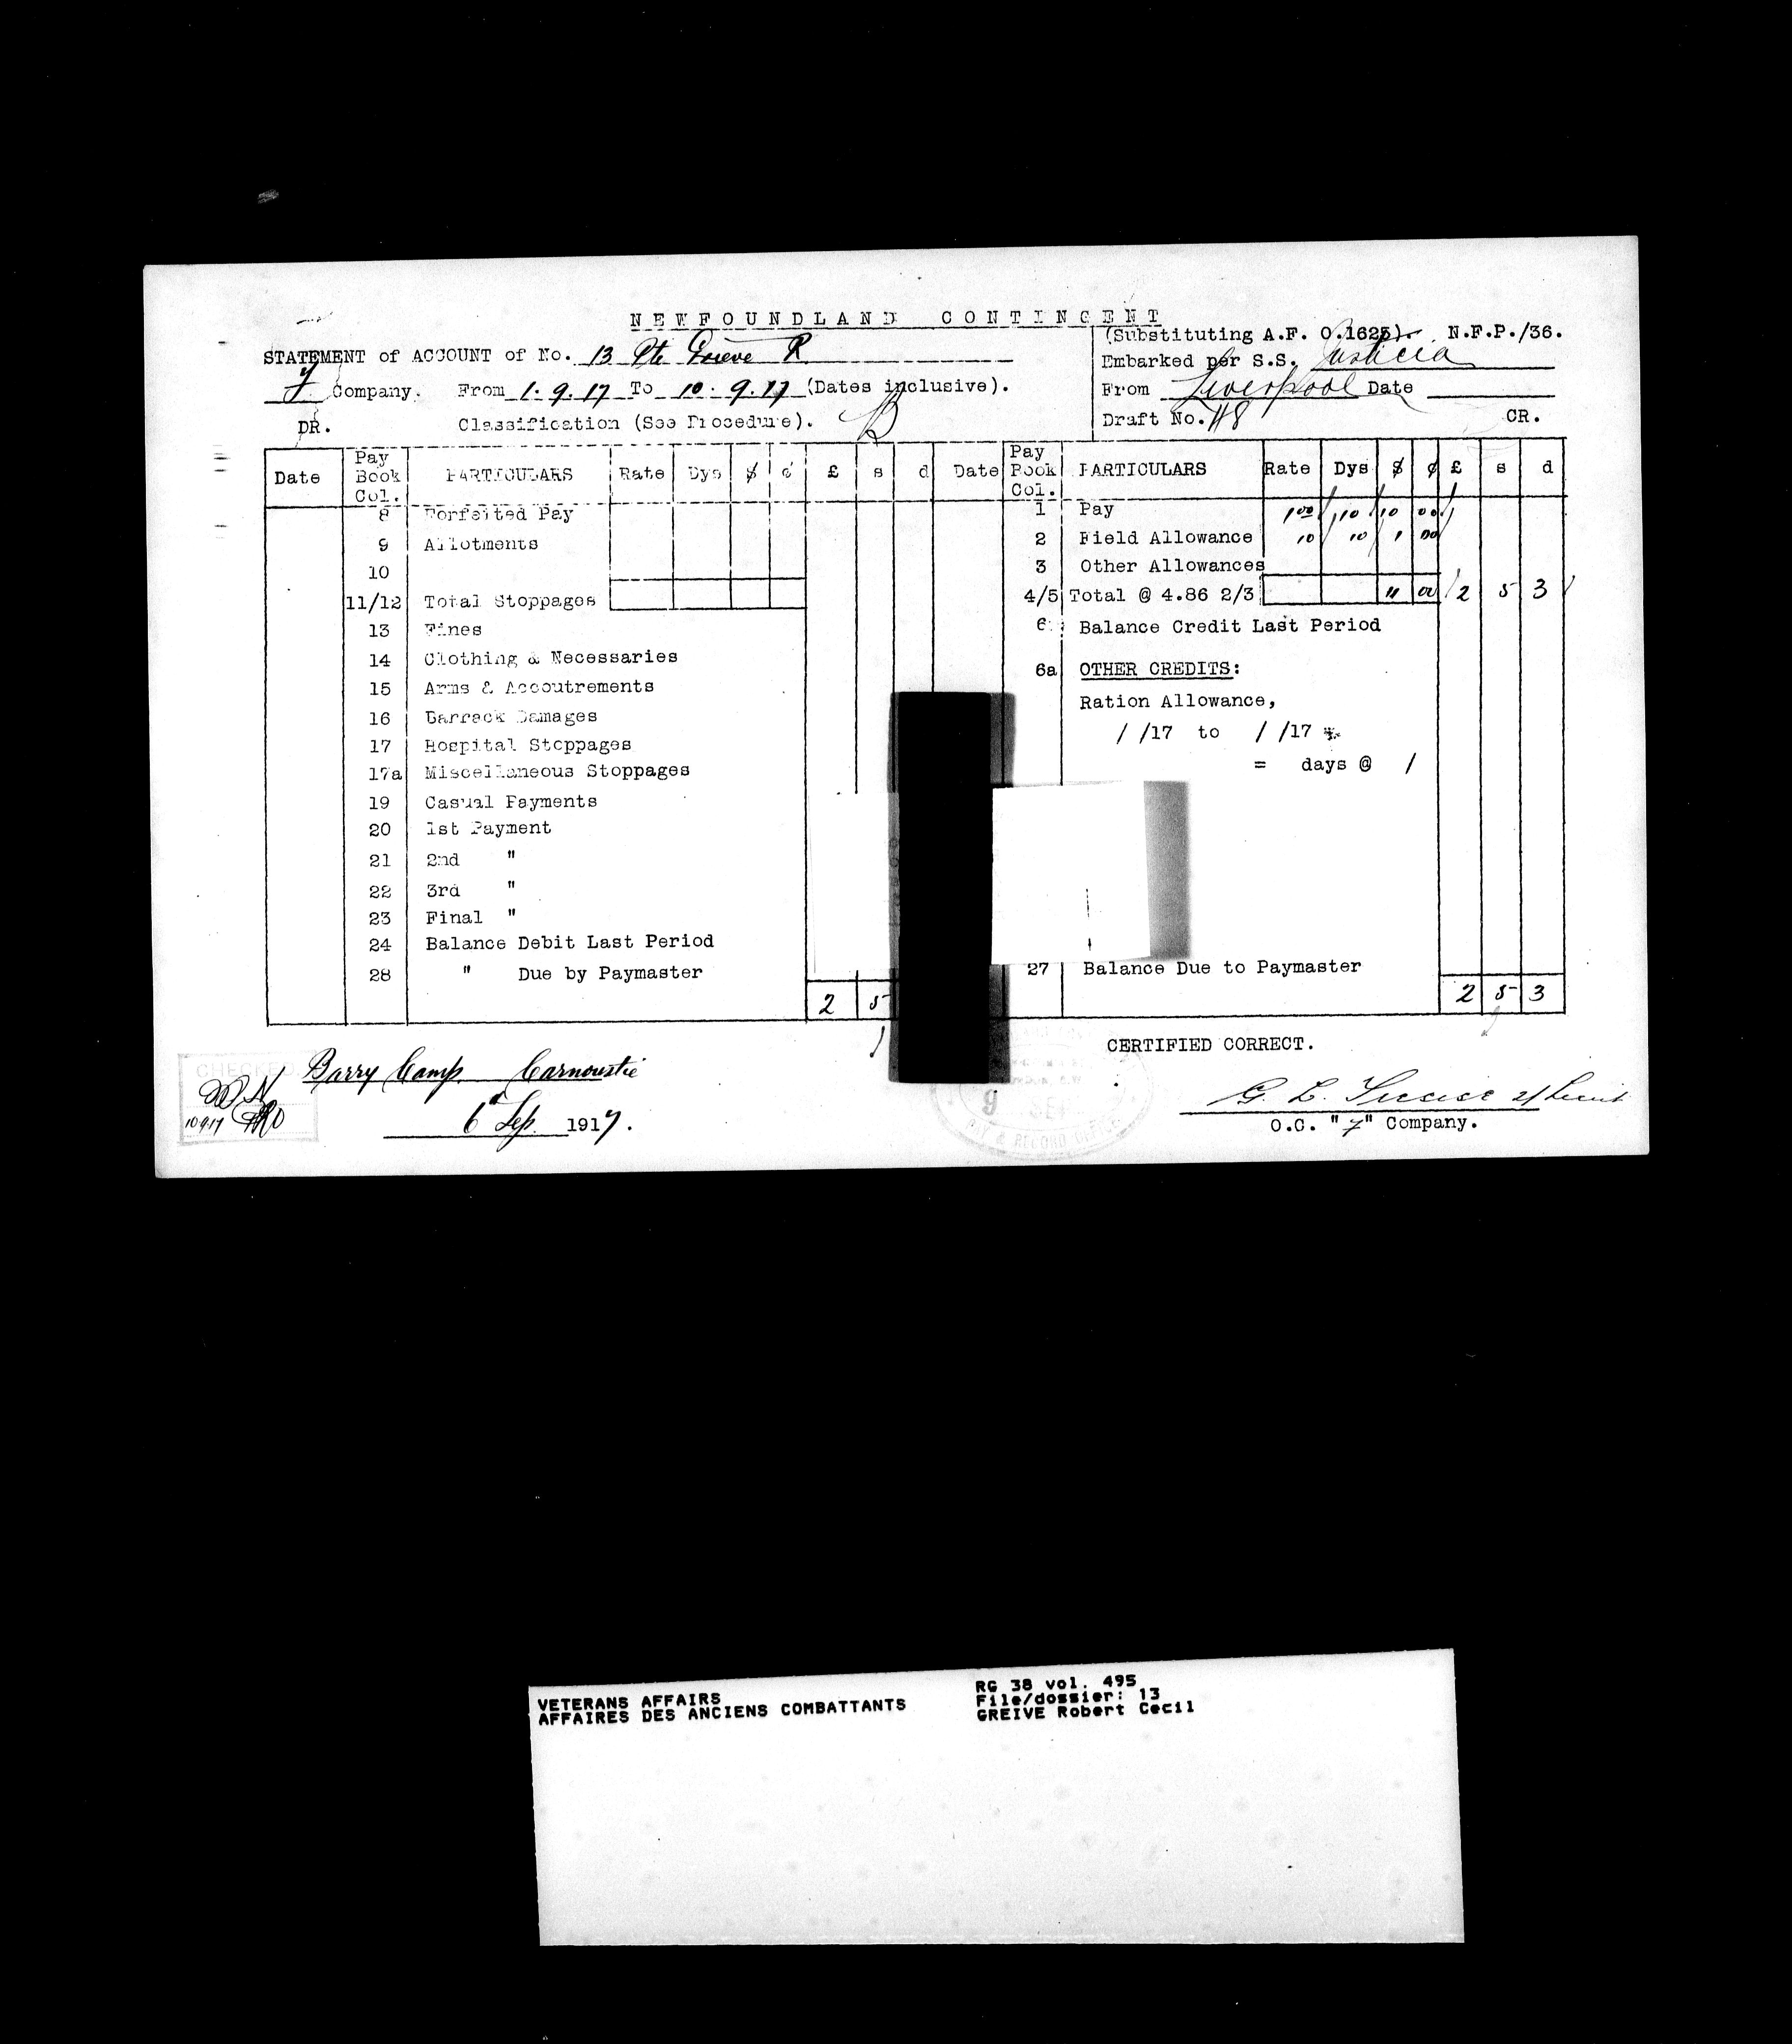 NEWFOUNDLAND CONTINGENT
(Substituting A.F. O.1625). N.F.P./36.
STATEMENT of ACCOUNT of No. 13 Pte Grieve R
Embarked per S.S. Justicia
Company. From 1.9.17 To 10.9.17 (Dates inclusive).
From Liverpool Date
DR. Classification (See Procedure). B
Draft No. H8 CR.
Date Pay Book Col. PARTICULARS Rate Dys $ ¢ £ s d Date Pay Book Col. PARTICULARS Rate Dys $ ¢ £ s d
8 Forfeited Pay
1 Pay 1.00 10 10 00
9 Allotments
2 Field Allowance 10 10 1 00
10
3 Other Allowances
11/12 Total Stoppages
4/5 Total @ 4.86 2/3 11 00 2 5 3
13 Fines
6 Balance Credit Last Period
14 Clothing & Necessaries
6a OTHER CREDITS:
15 Arms & Accoutrements
Ration Allowance,
16 Barrack Damages
/ /17 to / /17
17 Hospital Stoppages
17a Miscellaneous Stoppages
= days @ /
19 Casual Payments
20 1st Payment
21 2nd "
22 3rd "
23 Final "
24 Balance Debit Last Period
28 " Due by Paymaster
27 Balance Due to Paymaster
2 5
2 5 3
CERTIFIED CORRECT.
CHECKED
Barry Camp Carnoustie
10917
6 Sep. 1917.
9 SEP
PAY & RECORD OFFICE
G. L.
2/Lieut
O.C. "F" Company.
VETERANS AFFAIRS
AFFAIRES DES ANCIENS COMBATTANTS
RG 38 vol. 495
File/dossier: 13
GREIVE Robert Cecil